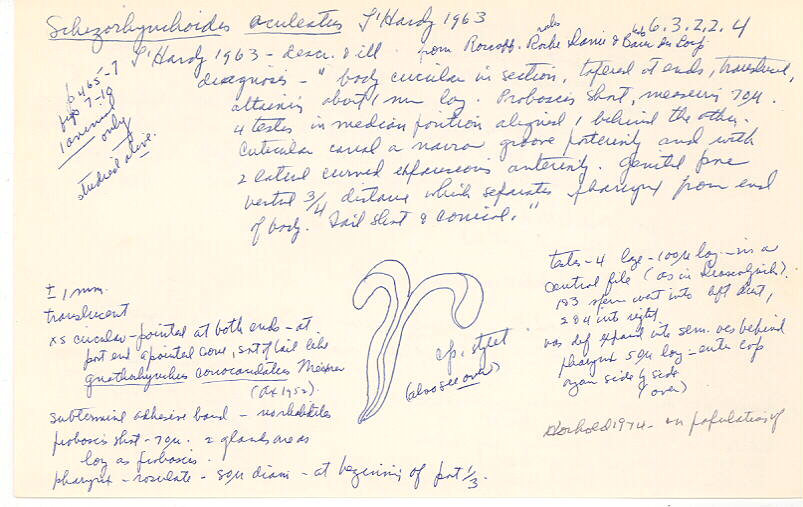 Schizorhynchoides aculeatus L'Hardy 1963
6.3.2.2.4
L'Hardy 1963 - descr. & ill. from Roscoff. Roche Danie &
p 465-7
figs 7-10
1 animal
only
studied alive.
diagnosis - "body circular in section, tapered at ends, translucent,
attaining about 1 mm long. Proboscis short, measuring 70μ.
4 testes in median position aligned 1 behind the other.
Cuticular canal a narrow groove posteriorly and with
2 lateral curved expansions anteriorly. Genital pore
ventral 3/4 distance which separates pharynx from end
of body. Tail short & conical."
± 1 mm.
translucent
xs circular - pointed at both ends - at
post end a pointed cone, sort of tail like
gnathorhynchus conocaudatus Meixner
(Ax 1952).
subterminal adhesive band - no rhabdites
proboscis short - 70μ. 2 glands as
long as proboscis.
pharynx - rosulate - 50μ diam - at beginning of post 1/3.
cop. stylet
(also see over)
testes - 4 large - 100μ long - in a
central file (as in
1 & 3 send vas def into left duct,
2 & 4 into right
vas def expand into sem. ves behind
pharynx 50μ long - enter cop
organ side by side
(over)
1974 - on population of